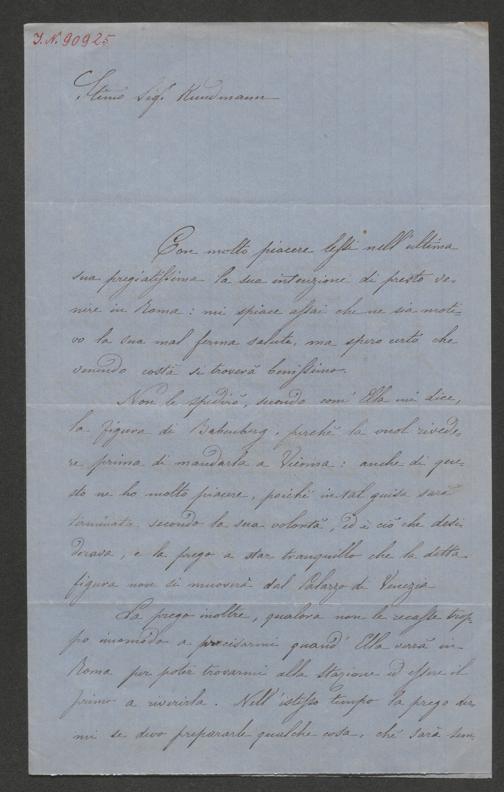 I. N. 90925
Stimo Sigr. Kundmann
Con molto piacere lessi nell'ultima
sua pregiatissima la sua intenzione di presto ve-
nire in Roma: mi spiace assai che ne sia moti-
vo la sua mal ferma salute, ma spero certo che
venendo costà si troverà benissimo.
Non le spedirò, secondo com'Ella mi dice,
la figura di Babenberg, perchè la vuol rivede-
re prima di mandarla a Vienna: anche di que-
sto ne ho molto piacere, poichè in tal guisa sarà
terminata secondo la sua volontà, ed è ciò che desi-
derava, e la prego a star tranquillo che la detta
figura non si muoverà dal Palazzo di Venezia
La prego inoltre, qualora non le recasse trop-
po incomodo a precisarmi quand'Ella verrà in
Roma per poter trovarmi alla Stazione ed essere il
primo a riverirla. Nell'istesso tempo la prego dir-
mi se devo prepararle qualche cosa, chè sarà